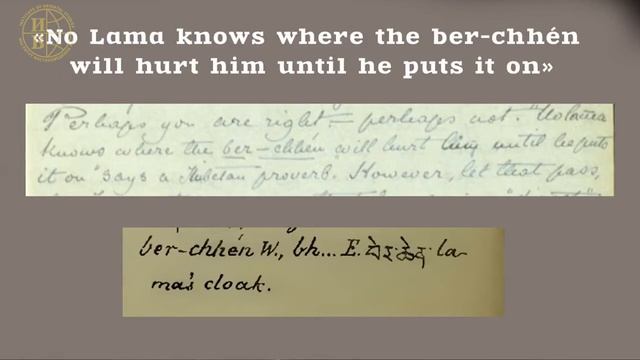 «No Lama knows where the ber-chhén
will hurt him until he puts it on»
Perhaps you are right – perhaps not. "No lama
knows where the ber-chhén will hurt him until he puts
it on" says a Thibetan proverb. However, let that pass,
ber-chhén W., bh... E. བེར་ཆེན་ la-
ma's cloak.